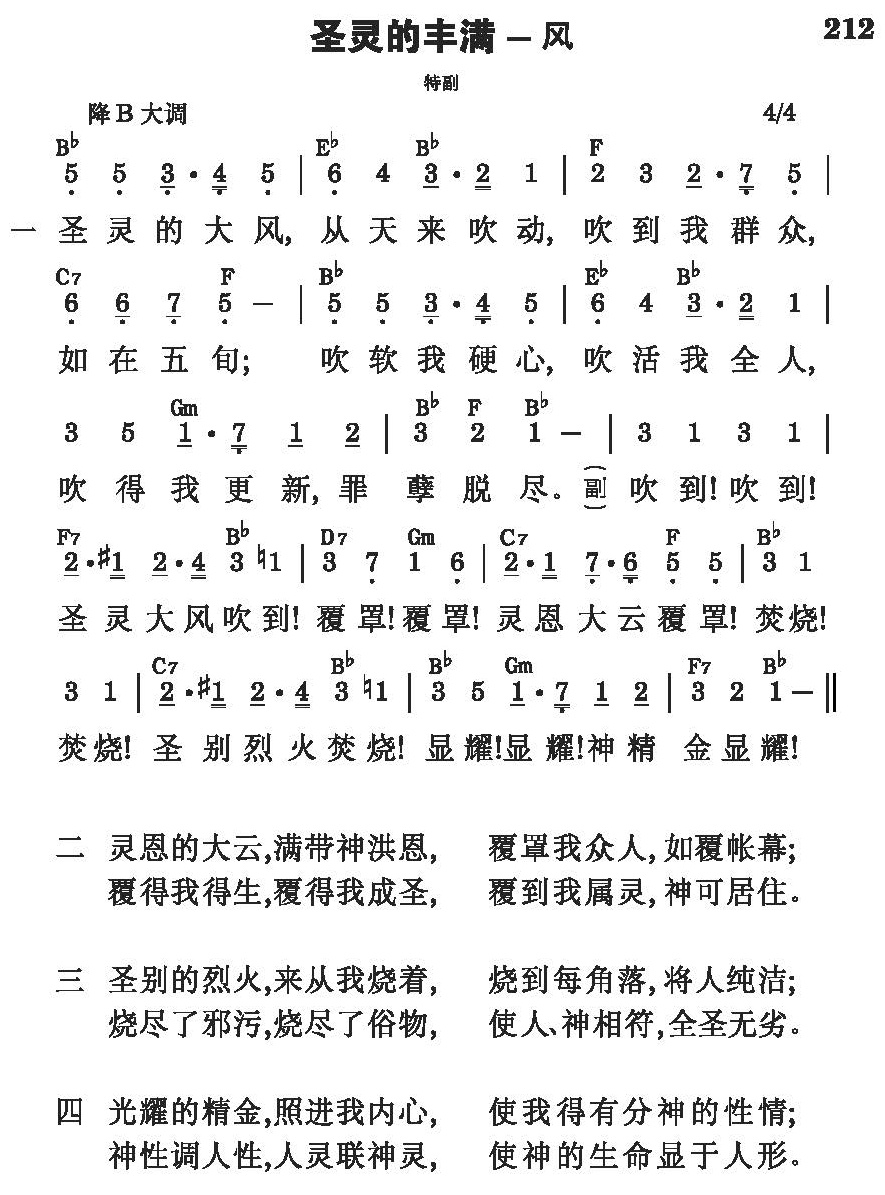 圣灵的丰满 — 风 212
特副
降B大调 4/4
B♭ E♭ B♭ F
5 5 3 · 4 5 | 6 4 3 · 2 1 | 2 3 2 · 7 5 |
一 圣灵的大风, 从天来吹动, 吹到我群众,
C7 F B♭ E♭ B♭
6 6 7 5 — | 5 5 3 · 4 5 | 6 4 3 · 2 1 |
如在五旬; 吹软我硬心, 吹活我全人,
Gm B♭ F B♭
3 5 1 · 7 1 2 | 3 2 1 — | 3 1 3 1 |
吹得我更新, 罪孽脱尽。(副) 吹到! 吹到!
F7 B♭ D7 Gm C7 F B♭
2 · ♯1 2 · 4 3 ♮1 | 3 7 1 6 | 2 · 1 7 · 6 5 5 | 3 1
圣灵大风吹到! 覆罩! 覆罩! 灵恩大云覆罩! 焚烧!
C7 B♭ B♭ Gm F7 B♭
3 1 | 2 · ♯1 2 · 4 3 ♮1 | 3 5 1 · 7 1 2 | 3 2 1 — ‖
焚烧! 圣别烈火焚烧! 显耀! 显耀! 神精金显耀!
二 灵恩的大云,满带神洪恩, 覆罩我众人, 如覆帐幕;
覆得我得生,覆得我成圣, 覆到我属灵, 神可居住。
三 圣别的烈火,来从我烧着, 烧到每角落, 将人纯洁;
烧尽了邪污,烧尽了俗物, 使人、神相符, 全圣无劣。
四 光耀的精金,照进我内心, 使我得有分神的性情;
神性调人性,人灵联神灵, 使神的生命显于人形。